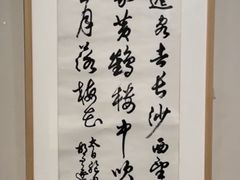 遷客去長沙西望
家黃鶴樓中吹
五月落梅花
太白